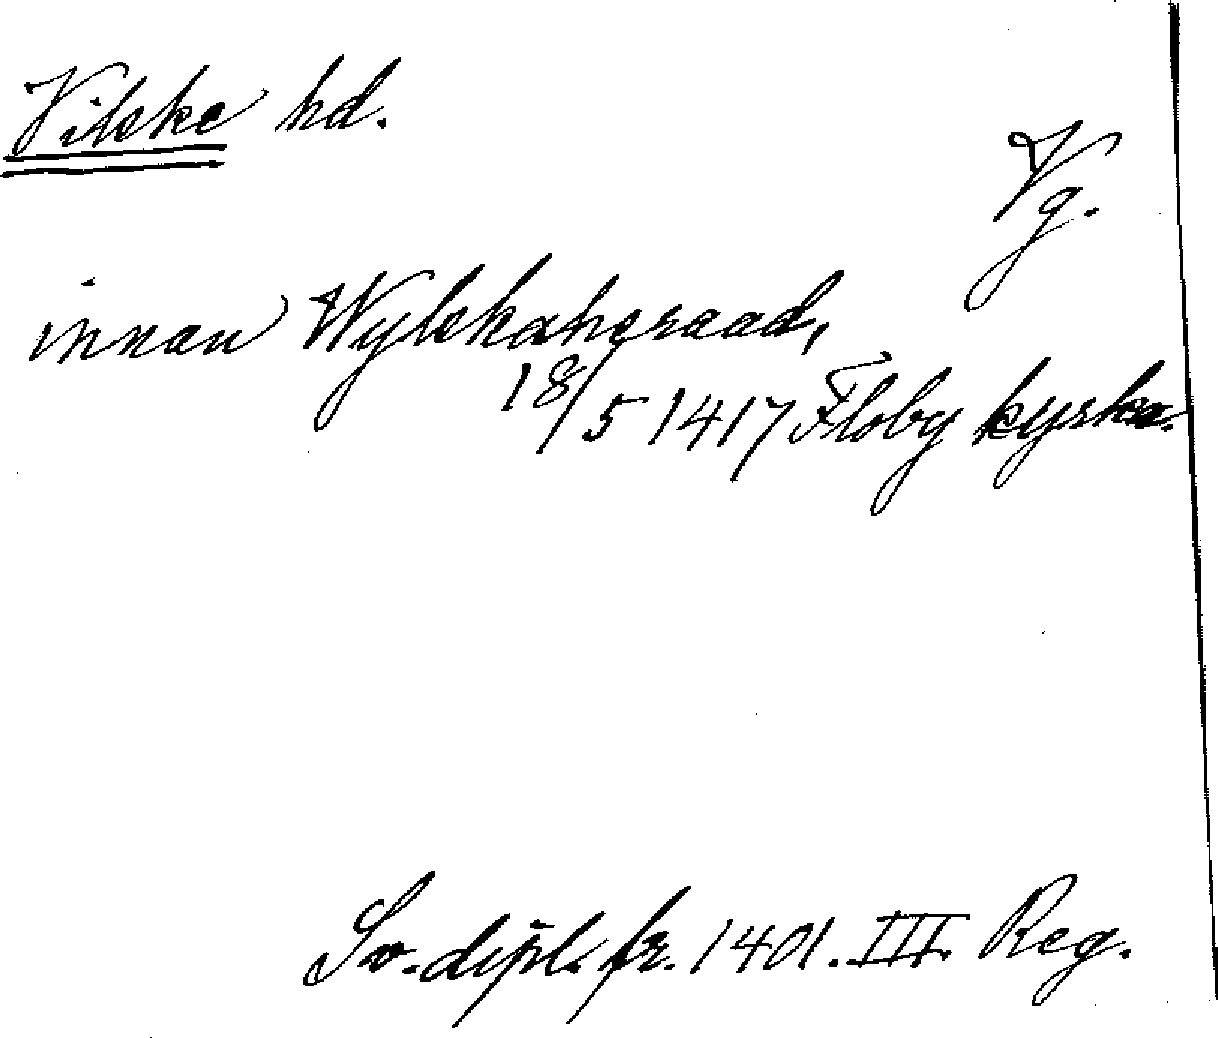 Vilske hd.
Vg.
innan Wylskaheraad,
18/5 1417 Floby kyrka.
Sv. dipl. fr. 1401. III. Reg.